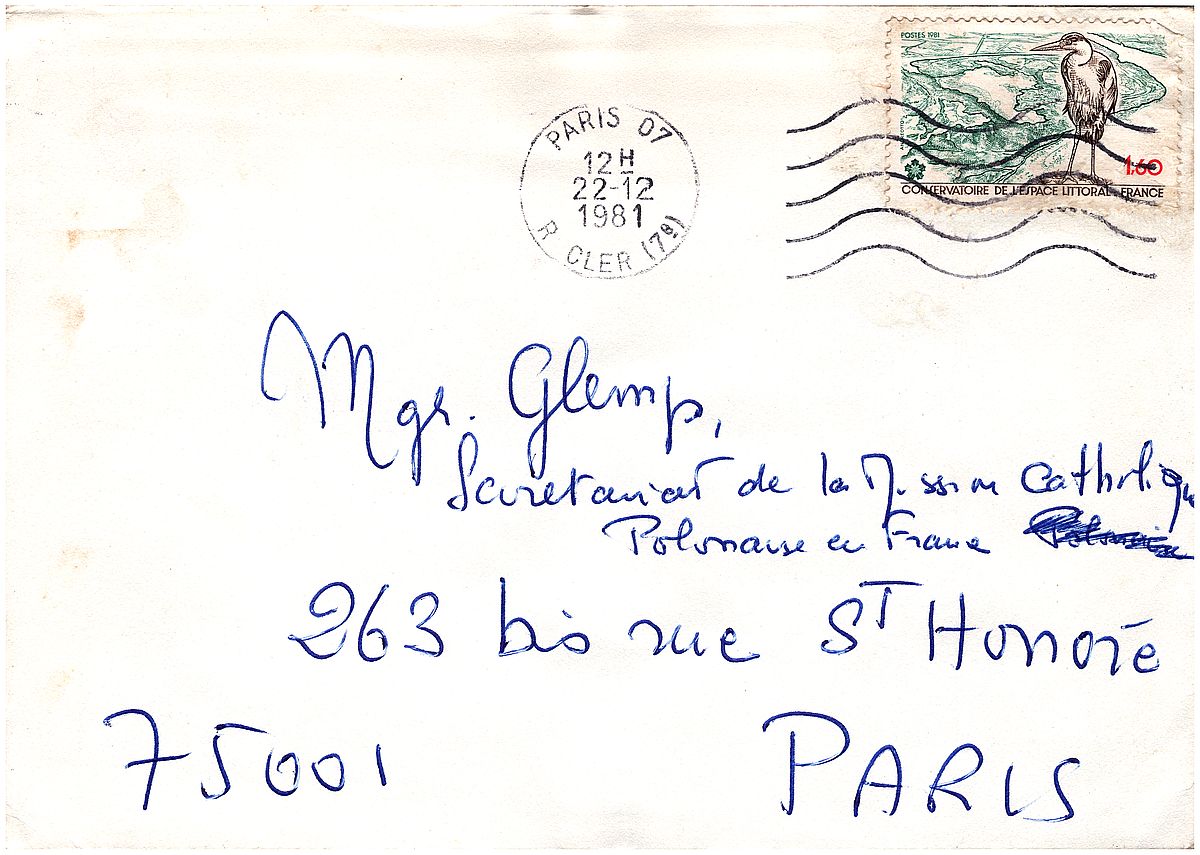 POSTES 1981
1,60
CONSERVATOIRE DE L'ESPACE LITTORAL - FRANCE
PARIS 07
12H
22-12
1981
R. CLER (7e)
Mgr. Glemp,
Secretariat de la Mission Catholiqu
Polonaise en France
263 bis rue ST Honoré
75001 PARIS